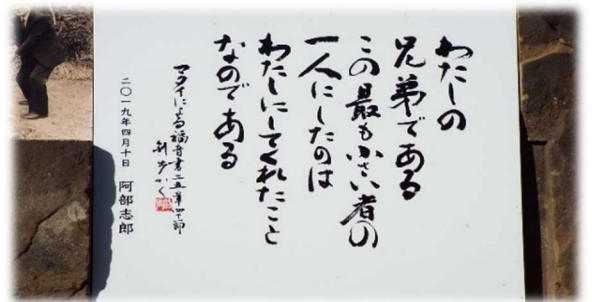 わたしの
兄弟である
この最も小さい者の
一人にしたのは
わたしにしてくれたこと
なのである
マタイによる福音書二五章四十節
かく
二〇一九年四月十日 阿部志郎